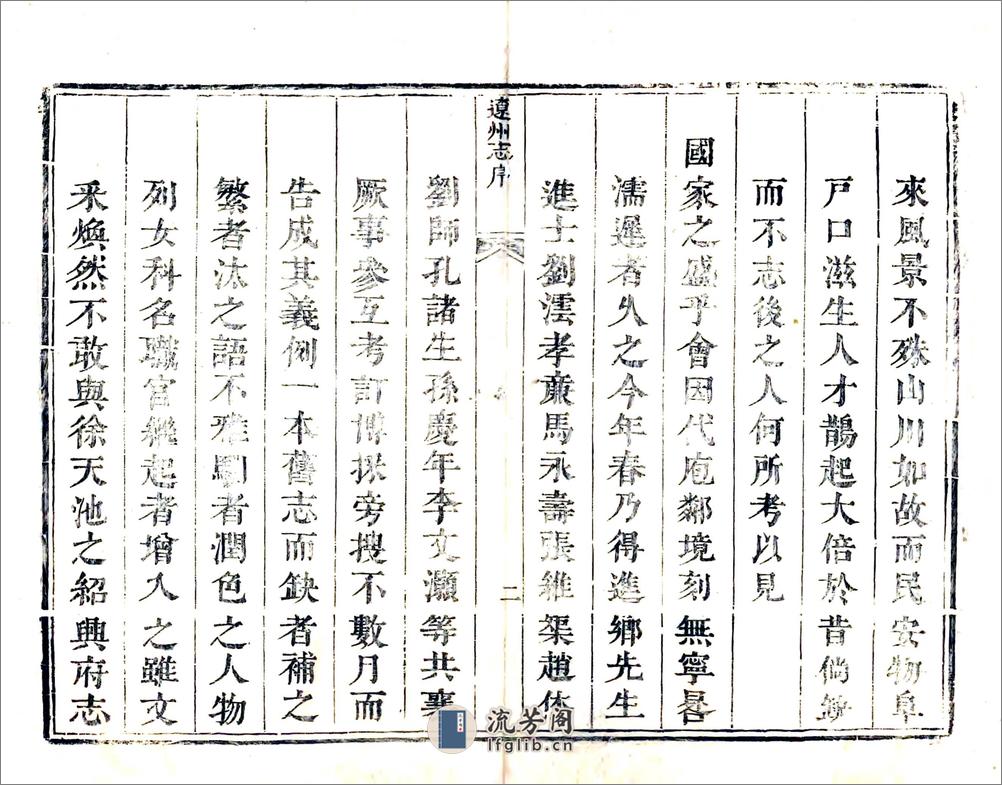 來風景不殊山川如故而民安物阜
戸口滋生人才鵲起大倍於昔倘
而不志後之人何所考以見
國家之盛乎會因代庖鄰境刻無寧晷
濡遲者久之今年春乃得進鄉先生
進士劉澐孝亷馬永壽張維榘趙体
遼州志序
二
劉師孔諸生孫慶年李文灝等共襄
厥事參互考訂博採旁搜不數月而
告成其義例一本舊志而缺者補之
繁者汰之語不雅馴者潤色之人物
列女科名職官繼起者增入之雖文
釆煥然不敢與徐天池之紹興府志
流芳阁
lfglib.cn